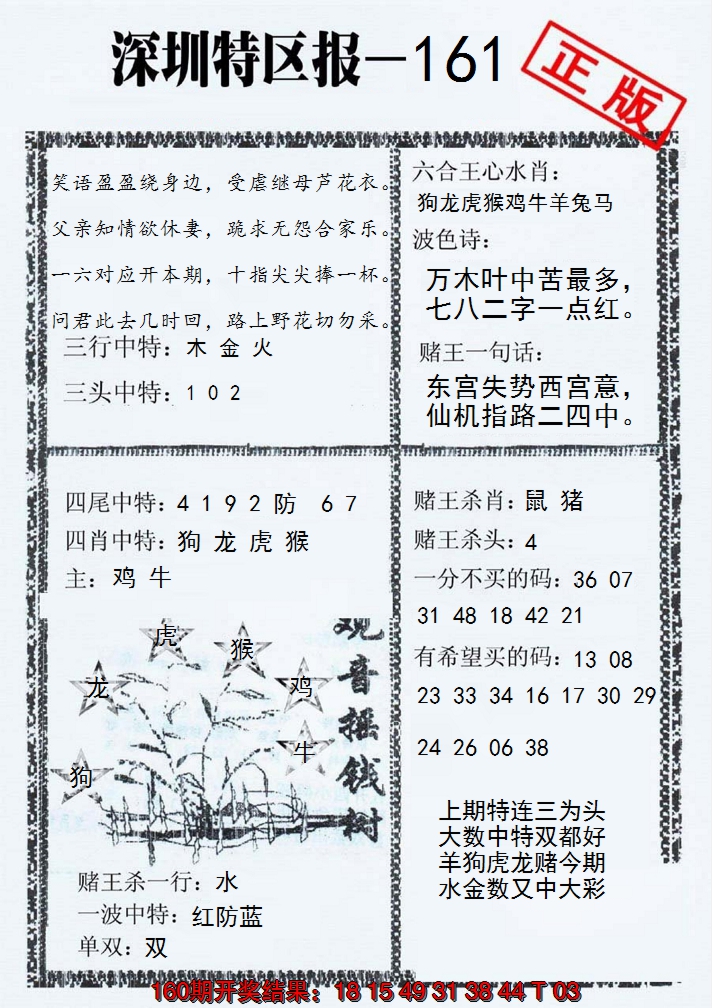 深圳特区报-161
正版
笑语盈盈绕身边，受虐继母芦花衣。
父亲知情欲休妻，跪求无怨合家乐。
一六对应开本期，十指尖尖捧一杯。
问君此去几时回，路上野花切勿采。
三行中特：木 金 火
三头中特：1 0 2
六合王心水肖：
狗龙虎猴鸡牛羊兔马
波色诗：
万木叶中苦最多，
七八二字一点红。
赌王一句话：
东宫失势西宫意，
仙机指路二四中。
四尾中特：4 1 9 2 防 6 7
四肖中特：狗 龙 虎 猴
主：鸡 牛
虎
猴
龙
鸡
牛
狗
观音摇钱树
赌王杀一行：水
一波中特：红防蓝
单双：双
赌王杀肖：鼠 猪
赌王杀头：4
一分不买的码：36 07
31 48 18 42 21
有希望买的码：13 08
23 33 34 16 17 30 29
24 26 06 38
上期特连三为头
大数中特双都好
羊狗虎龙赌今期
水金数又中大彩
160期开奖结果：18 15 49 31 38 44 T 03